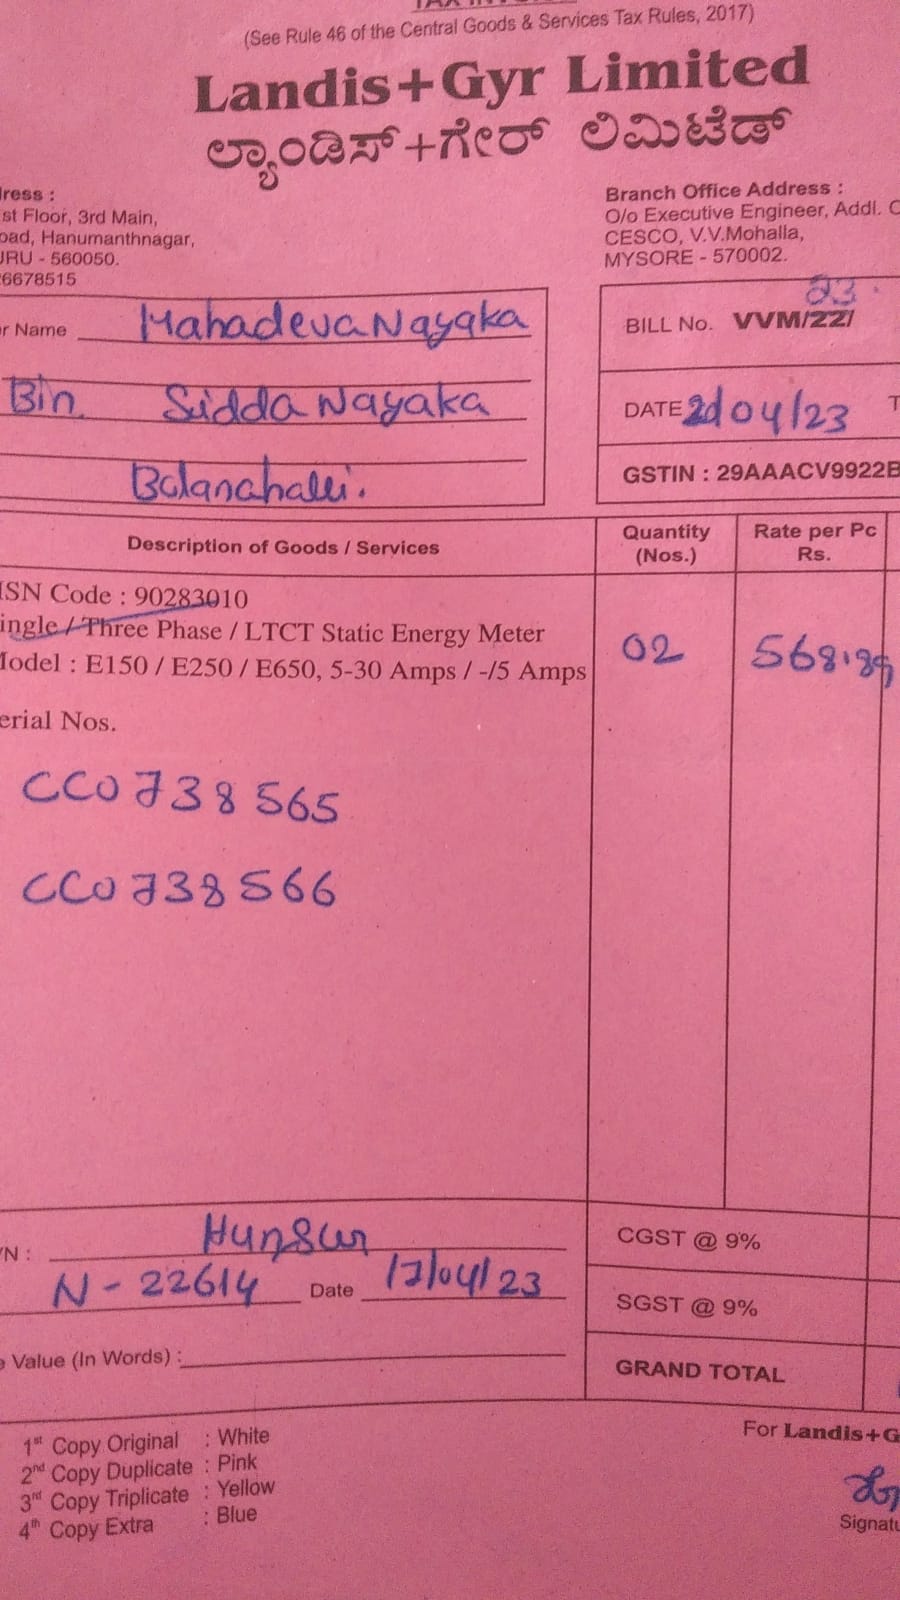 (See Rule 46 of the Central Goods & Services Tax Rules, 2017)
Landis+Gyr Limited
ಲ್ಯಾಂಡಿಸ್+ಗೇರ್ ಲಿಮಿಟೆಡ್
ress :
st Floor, 3rd Main,
oad, Hanumanthnagar,
URU - 560050.
6678515
Branch Office Address :
O/o Executive Engineer, Addl.
CESCO, V.V.Mohalla,
MYSORE - 570002.
r Name Mahadeva Nayaka
Bin. Sidda Nayaka
Bolanahalli.
23.
BILL No. VVM/22/
DATE 04/23
GSTIN : 29AAACV9922B
Description of Goods / Services
Quantity (Nos.)
Rate per Pc Rs.
ISN Code : 90283010
ingle / Three Phase / LTCT Static Energy Meter
Model : E150 / E250 / E650, 5-30 Amps / -/5 Amps
02 568.
erial Nos.
CC0738565
CC0738566
/N : Hunsur
N - 22614 Date 17/04/23
CGST @ 9%
SGST @ 9%
Value (In Words) :
GRAND TOTAL
1st Copy Original : White
2nd Copy Duplicate : Pink
3rd Copy Triplicate : Yellow
4th Copy Extra : Blue
For Landis+G
Signatu